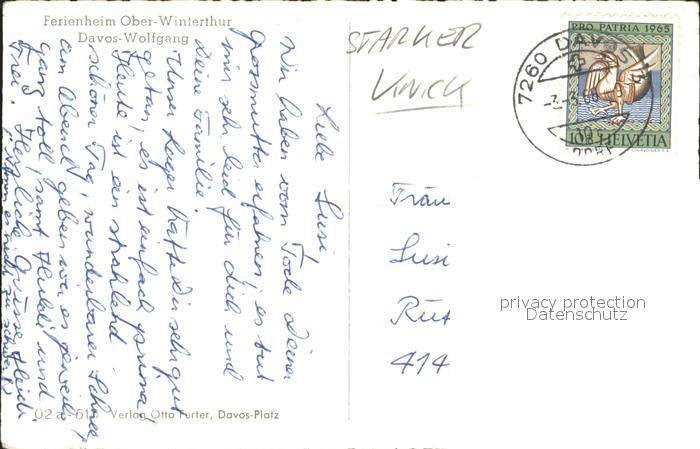 Ferienheim Ober-Winterthur
Davos-Wolfgang
STARKER
KNICK
PRO PATRIA 1965
7260 DAVOS
10 HELVETIA
COURVOISIER S.A.
Liebe Susi
Wir haben vom Tode Deiner
Grossmutter erfahren, es tut
mir sehr leid für Dich und
Deine Familie.
Unser Lager hätte Dir sehr gut
getan, es ist einfach prima!
Heute ist ein strahlend
schöner Tag, wunderbarer Schnee
am Abend geben wir es jeweils
ganz toll, samt Huldi und
Frei. Herzliche Grüsse Heidi
Fräu
Susi
Rüt
414
privacy protection
Datenschutz
Verlag Otto Furter, Davos-Platz